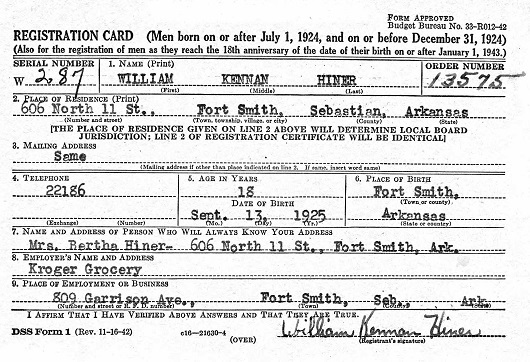 FORM APPROVED
Budget Bureau No. 33-R012-42
REGISTRATION CARD (Men born on or after July 1, 1924, and on or before December 31, 1924)
(Also for the registration of men as they reach the 18th anniversary of the date of their birth on or after January 1, 1943.)
SERIAL NUMBER 1. NAME (Print) ORDER NUMBER
W. 287 WILLIAM KENNAN HINER 13575
(First) (Middle) (Last)
2. PLACE OF RESIDENCE (Print)
606 North 11 St., Fort Smith, Sebastian, Arkansas
(Number and street) (Town, township, village, or city) (County) (State)
[THE PLACE OF RESIDENCE GIVEN ON LINE 2 ABOVE WILL DETERMINE LOCAL BOARD
JURISDICTION; LINE 2 OF REGISTRATION CERTIFICATE WILL BE IDENTICAL]
3. MAILING ADDRESS
Same
(Mailing address if other than place indicated on line 2. If same, insert word same)
4. TELEPHONE 5. AGE IN YEARS 6. PLACE OF BIRTH
22186 18 Fort Smith,
DATE OF BIRTH (Town or county)
Sept. 13, 1925 Arkansas
(Exchange) (Number) (Mo.) (Day) (Yr.) (State or country)
7. NAME AND ADDRESS OF PERSON WHO WILL ALWAYS KNOW YOUR ADDRESS
Mrs. Bertha Hiner- 606 North 11 St., Fort Smith, Ark.
8. EMPLOYER'S NAME AND ADDRESS
Kroger Grocery
9. PLACE OF EMPLOYMENT OR BUSINESS
809 Garrison Ave., Fort Smith, Seb., Ark.
(Number and street or R. F. D. number) (Town) (County) (State)
I AFFIRM THAT I HAVE VERIFIED ABOVE ANSWERS AND THAT THEY ARE TRUE.
DSS Form 1 (Rev. 11-16-42) c16—21630-4 William Kennan Hiner
(OVER) (Registrant's signature)